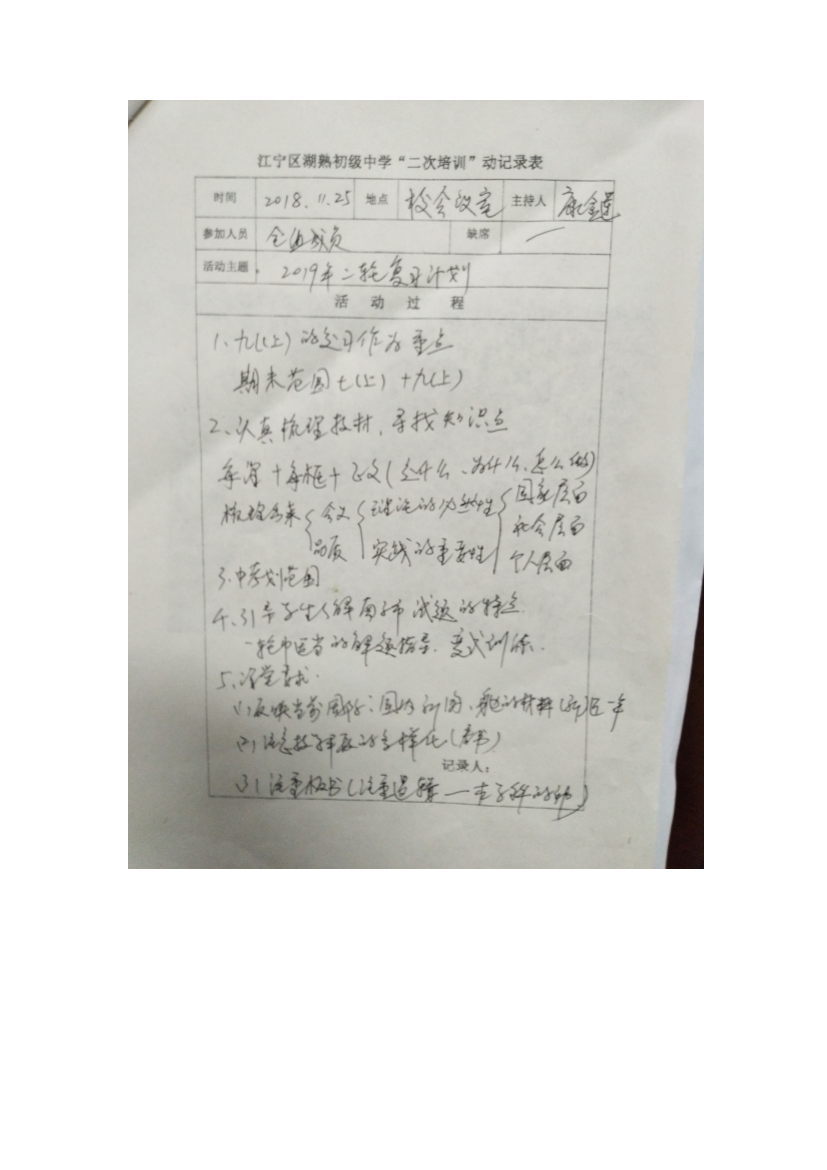 江宁区湖熟初级中学“二次培训”动记录表
时间 2018.11.25 地点 校会议室 主持人 康金
参加人员 全组成员 缺席
活动主题 2019年二轮复习计划
活动过程
1、九(上)的复习作为重点
期末范围七(上)+九(上)
2、认真梳理教材,寻找知识点
每课+每框+正文(是什么、为什么、怎么做)
梳理出来 含义 理论的必然性 国家层面
品质 实践的重要性 社会层面
个人层面
3、中考划范围
4、引导学生了解南京市试题的特点
一轮中适当的解题指导、变式训练.
5、课堂要求.
(1)反映当前国际、国内新闻、的材料(新)近一年
(2)注意教学手段的多样化
记录人:
(3)注重板书(注重逻辑—本学科的